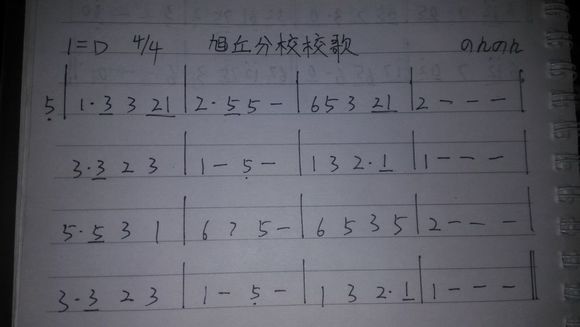 1=D 4/4 旭丘分校校歌 のんのん
5 | 1·3 3 21 | 2·5 5 - | 65 3 21 | 2 - - - |
3·3 2 3 | 1 - 5 - | 1 3 2·1 | 1 - - -
5·5 3 1 | 6 7 5 - | 6 5 3 5 | 2 - - -
3·3 2 3 | 1 - 5 - | 1 3 2·1 | 1 - - - ||